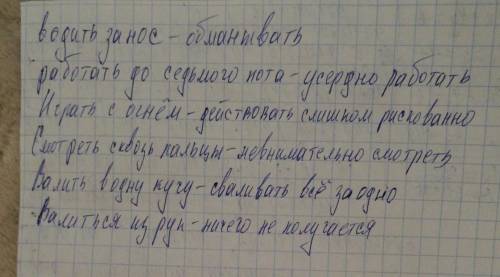 водить за нос - обманывать
работать до седьмого пота - усердно работать
Играть с огнём - действовать слишком рискованно
Смотреть сквозь пальцы - невнимательно смотреть
Валить в одну кучу - сваливать всё заодно
Валиться из рук - ничего не получается